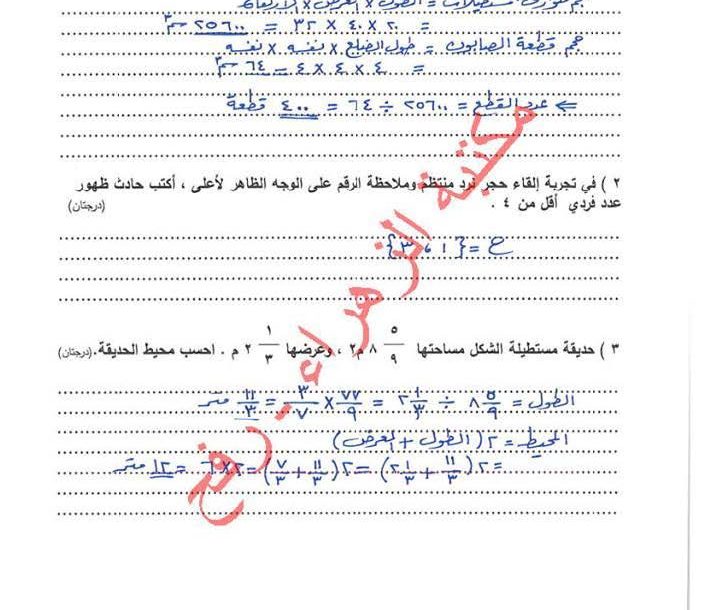 حجم متوازي مستطيلات = الطول × العرض × الارتفاع
= ٢٠ × ٤٠ × ٣٢ = ٢٥٦٠٠ سم٣
حجم قطعة الصابون = طول الضلع × نفسه × نفسه
= ٤ × ٤ × ٤ = ٦٤ سم٣
⇐ عدد القطع = ٢٥٦٠٠ ÷ ٦٤ = ٤٠٠ قطعة
٢ ) في تجربة إلقاء حجر نرد منتظم وملاحظة الرقم على الوجه الظاهر لأعلى ، أكتب حادث ظهور
عدد فردي أقل من ٤ . (درجتان)
ح = {١ ، ٣}
٣ ) حديقة مستطيلة الشكل مساحتها ٥/٩ ٨ م٢ ، وعرضها ١/٣ ٢ م . احسب محيط الحديقة.(درجتان)
الطول = ٨ ٥/٩ ÷ ٢ ١/٣ = ٧٧/٩ × ٣/٧ = ١١/٣ متر
المحيط = ٢ (الطول + العرض)
= ٢ (١١/٣ + ٢ ١/٣) = ٢ (١١/٣ + ٧/٣) = ٢ × ٦ = ١٢ متر
مكتبة الزهراء - رفح